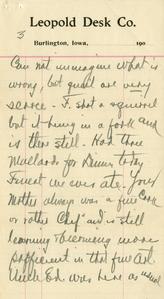 Leopold Desk Co.
3 Burlington, Iowa, 190
Can not imagine what is
wrong, but quail are very
scarce - I shot a squirrel
but it hung in a fork and
is there still. Had three
Mallards for Dinner today
Finest we ever ate. Your
Mother always was a fine Cook
or rather "Chef" and is still
learning & becoming more
proficient in that fine Art
Uncle Ed was here as usual